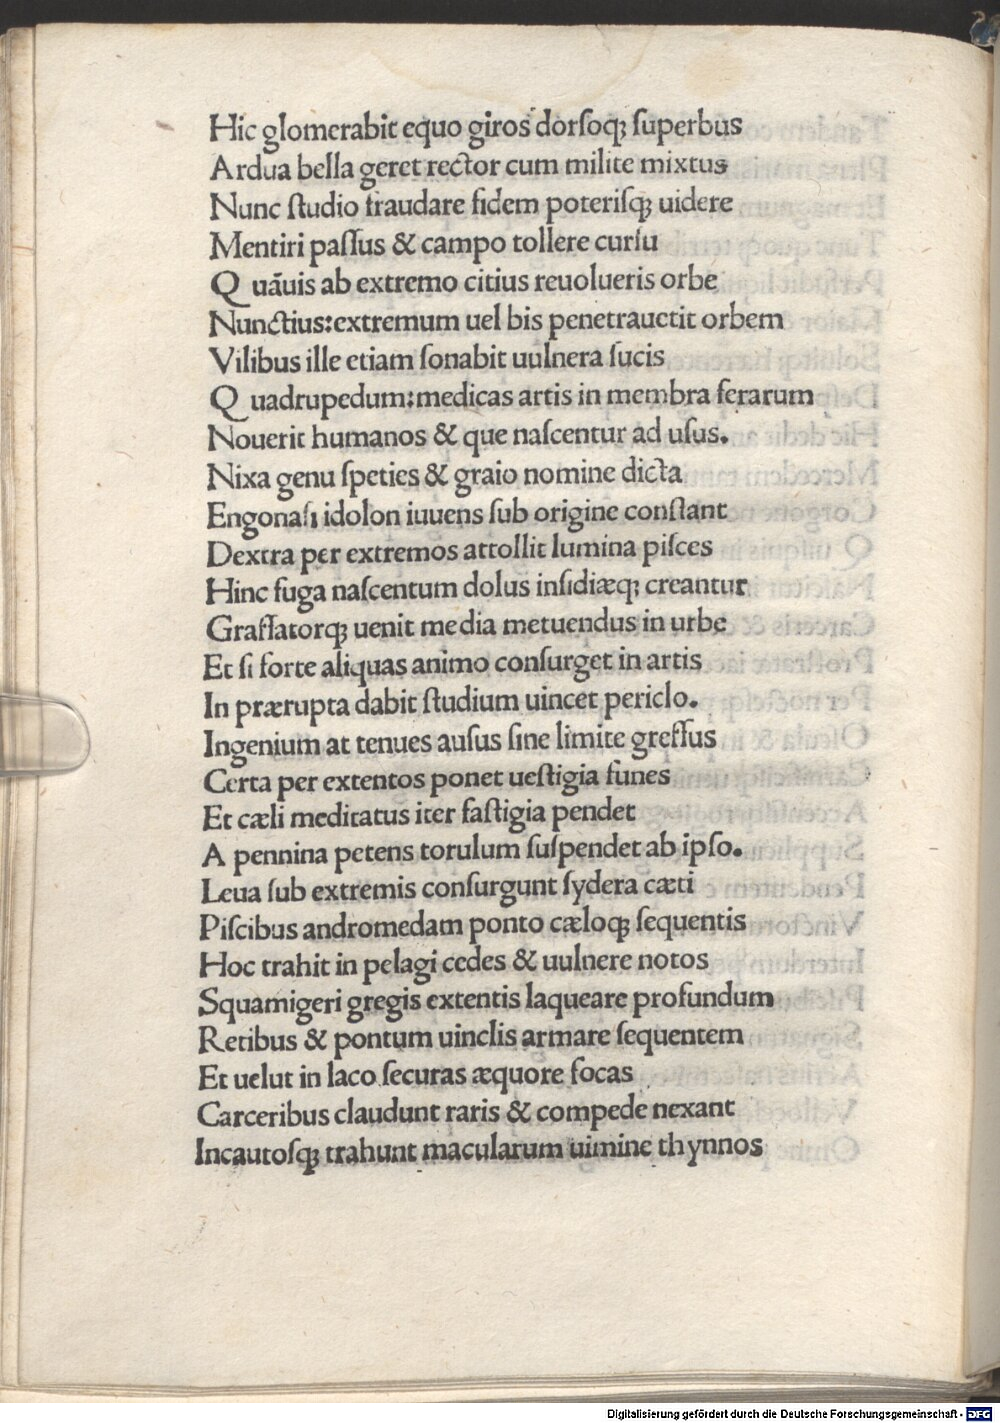 Hic glomerabit equo giros dorſoqꝫ ſuperbus
Ardua bella geret rector cum milite mixtus
Nunc ſtudio fraudare fidem poteriſqꝫ uidere
Mentiri paſſus & campo tollere curſu
Q uāuis ab extremo citius reuolueris orbe
Nunctius:extremum uel bis penetrauetit orbem
Vilibus ille etiam ſonabit uulnera ſucis
Q uadrupedum:medicas artis in membra ferarum
Nouerit humanos & que naſcentur ad uſus.
Nixa genu ſpeties & graio nomine dicta
Engonaſi idolon iuuens ſub origine conſtant
Dextra per extremos attollit lumina piſces
Hinc fuga naſcentum dolus inſidiæqꝫ creantur
Graſſatorqꝫ uenit media metuendus in urbe
Et ſi forte aliquas animo conſurget in artis
In prærupta dabit ſtudium uincet periclo.
Ingenium at tenues auſus ſine limite greſſus
Certa per extentos ponet ueſtigia funes
Et cæli meditatus iter faſtigia pendet
A pennina petens torulum ſuſpendet ab ipſo.
Leua ſub extremis conſurgunt ſydera cæti
Piſcibus andromedam ponto cæloqꝫ ſequentis
Hoc trahit in pelagi cedes & uulnere notos
Squamigeri gregis extentis laqueare profundum
Retibus & pontum uinclis armare ſequentem
Et uelut in laco ſecuras æquore focas
Carceribus claudunt raris & compede nexant
Incautoſqꝫ trahunt macularum uimine thynnos
Digitalisierung gefördert durch die Deutsche Forschungsgemeinschaft - DFG